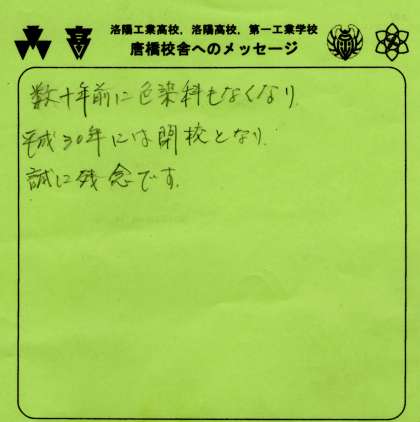 洛陽工業高校，洛陽高校，第一工業学校
唐橋校舎へのメッセージ
数十年前に色染科もなくなり
平成30年には閉校となり
誠に残念です.